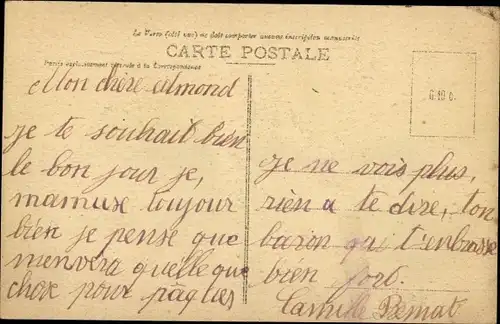 Le Verso (côté vue) ne doit comporter aucune inscription manuscrite
CARTE POSTALE
Partie exclusivement réservée à la Correspondance
Mon chère edmond
je te souhait bien
le bon jour je,
mamuse toujour
bien je pense que
menvera quelle que
chose pour pâques
je ne vois plus,
rien a te dire, ton
qui t'enbrasse
bien fort.
Camille